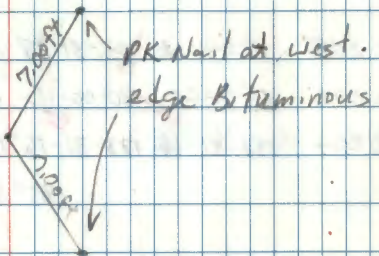 7.00ft
PK Nail at west.
edge Bituminous
7.00ft